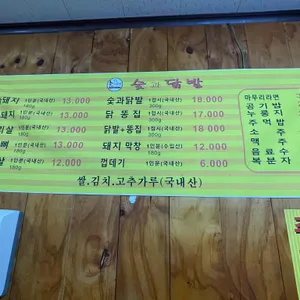 숯과닭발
돼지 1인분(국내산) 13,000
180g
돼지 1인분(국내산) 13,000
180g
살 1인분(국내산) 13,000
180g
뼈 1인분(국내산) 13,000
180g
살 1인분(국내산) 12,000
180g
숯과닭발 1접시(국내산) 18,000
300g
닭 똥 집 1접시(국내산) 17,000
300g
닭발+똥집 1접시(국내산) 18,000
300g
돼지 막창 1인분(수입산) 12,000
180g
껍데기 1인분(국내산) 6,000
마무리라면
공기밥
누룽지
주먹밥
소주
맥주
음료수
복분자
쌀,김치,고추가루(국내산)